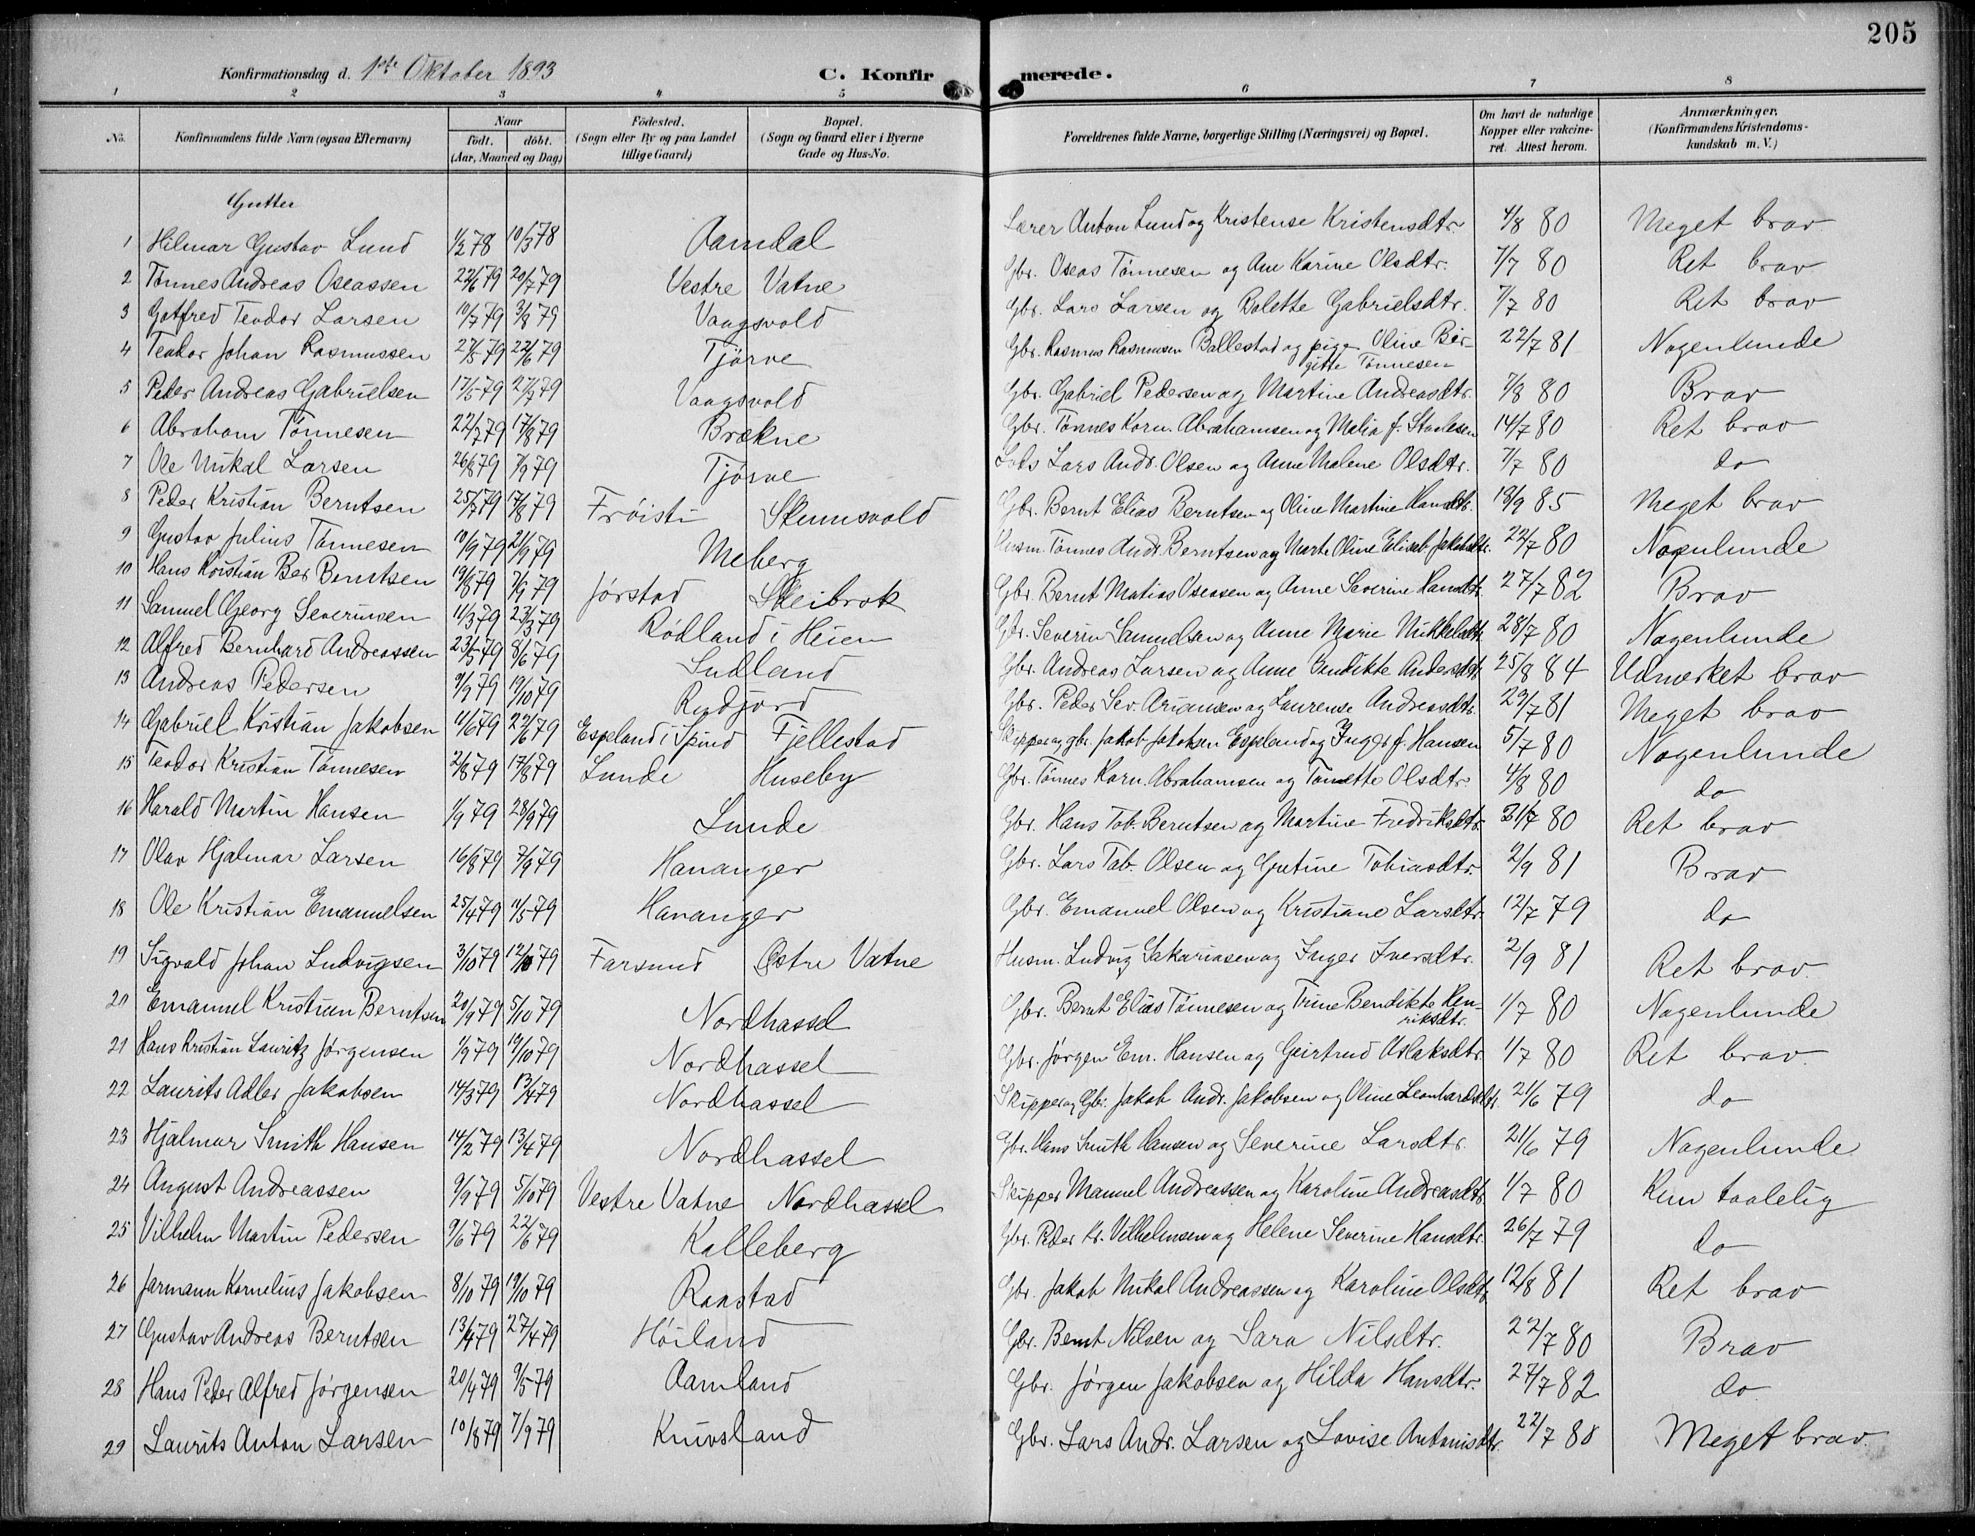 205
Konfirmationsdag d. 1ste Oktober 1893 C. Konfirmerede.
1 2 3 4 5 6 7 8
No. Konfirmandens fulde Navn (ogsaa Efternavn) Naar født. døbt. (Aar, Maaned og Dag) Fødested. (Sogn eller By og paa Landet tillige Gaard) Bopæl. (Sogn og Gaard eller i Byerne Gade og Hus-No. Forældrenes fulde Navne, borgerlige Stilling (Næringsvei) og Bopæl. Om havt de naturlige Kopper eller vakcineret. Attest herom. Anmærkninger. (Konfirmandens Kristendomskundskab m. V.)
Gutter
1 Hilmar Gustav Lund 1/2 78 10/3 78 Aamdal Lærer Anton Lund og Kristense Kristensdtr. 4/8 80 Meget brav
2 Tønnes Andreas Oseassen 22/6 79 20/7 79 Vestre Vatne Gbr. Oseas Tønnesen og Ane Karine Olsdtr. 7/7 80 Ret brav
3 Gotfred Teodor Larsen 10/7 79 3/8 79 Vaagsvold Gbr. Lars Larsen og Bolette Gabrielsdtr. 7/7 80 Ret brav
4 Teodor Johan Rasmussen 27/5 79 22/6 79 Tjørve Gbr. Rasmus Rasmussen Ballestad og pige Oline Bergitte Tønnesen 22/7 81 Nogenlunde
5 Peder Andreas Gabrielsen 17/5 79 27/7 79 Vaagsvold Gbr. Gabriel Pedersen og Martine Andreasdtr. 7/8 80 Brav
6 Abraham Tønnesen 22/7 79 17/8 79 Brækne Gbr. Tønnes Korn. Abrahamsen og Malia f. Staalesen 14/7 80 Ret brav
7 Ole Mikal Larsen 26/8 79 7/9 79 Tjørve Lods Lars Andr. Olsen og Anne Malene Olsdtr. 7/7 80 do
8 Peder Kristian Berntsen 25/7 79 17/8 79 Frøisti Skumsvold Gbr. Bernt Elias Berntsen og Oline Martine Hansdtr. 18/9 85 Meget brav
9 Gustav Julius Tønnesen 10/9 79 21/9 79 Meberg Husm. Tønnes Andr. Berntsen og Marte Oline Elisab. Jakobsdtr. 22/7 80 Nogenlunde
10 Hans Kristian Ber Berntsen 19/8 79 7/9 79 Jørstad Skeibrok Gbr. Bernt Matias Oseassen og Anne Severine Hansdtr. 27/7 82 Brav
11 Samuel Georg Severinsen 11/3 79 23/3 79 Rødland i Heien Gbr. Severin Samuelsen og Anne Marie Mikkelsdtr. 28/7 80 Nogenlunde
12 Alfred Bernhard Andreassen 23/5 79 8/6 79 Sudland Gbr. Andreas Larsen og Anne Bendikte Andersdtr. 25/8 84 Udmerket brav
13 Andreas Pedersen 9/9 79 19/10 79 Rudjord Gbr. Peder Sev. Ariansen og Laurense Andreasdtr. 29/7 81 Meget brav
14 Gabriel Kristian Jakobsen 11/6 79 22/6 79 Espeland i Spind Fjellestad Skipper og gbr. Jakob Jakobsen Espeland og Inger f. Hansen 5/7 80 Nogenlunde
15 Teodor Kristian Tønnesen 2/8 79 17/8 79 Lunde Huseby Gbr. Tønnes Korn. Abrahamsen og Tonette Olsdtr. 4/8 80 do
16 Harald Martin Hansen 1/9 79 28/9 79 Lunde Gbr. Hans Tob. Berntsen og Martine Fredriksdtr. 31/7 80 Ret brav
17 Olav Hjalmar Larsen 16/8 79 7/9 79 Hananger Gbr. Lars Tab. Olsen og Gutine Tobiasdtr. 2/9 81 Brav
18 Ole Kristian Emanuelsen 25/4 79 11/5 79 Hananger Gbr. Emanuel Olsen og Kristiane Larsdtr. 12/7 79 do
19 Sigvald Johan Ludvigsen 3/10 79 12/10 79 Farsund Østre Vatne Husm. Ludvig Sakariasen og Inger Iversdtr. 2/9 81 Ret brav
20 Emanuel Kristian Berntsen 20/9 79 5/10 79 Nordhassel Gbr. Bernt Elias Tønnesen og Trine Bendikte Henriksdtr. 1/7 80 Nogenlunde
21 Hans Kristian Lauritz Jørgensen 1/9 79 19/10 79 Nordhassel Gbr. Jørgen Em. Hansen og Geirtrud Aslaksdtr. 1/7 80 Ret brav
22 Laurits Adler Jakobsen 14/3 79 13/4 79 Nordhassel Skipper og Gbr. Jakob Andr. Jakobsen og Oline Leonhardsdtr. 21/6 79 do
23 Hjalmar Smith Hansen 14/2 79 13/4 79 Nordhassel Gbr. Hans Smith Hansen og Severine Larsdtr. 21/6 79 Nogenlunde
24 August Andreassen 9/9 79 5/10 79 Vestre Vatne Nordhassel Skipper Manuel Andreassen og Karoline Andreasdtr. 1/7 80 Kun taalelig
25 Vilhelm Martin Pedersen 9/6 79 22/6 79 Kalleberg Gbr. Peder Kr. Vilhelmsen og Helene Severine Hansdtr. 26/7 79 do
26 Jarmann Kornelius Jakobsen 8/10 79 19/10 79 Raastad Gbr. Jakob Mikal Andreassen og Karoline Olsdtr. 12/8 81 Ret brav
27 Gustav Andreas Berntsen 13/4 79 27/4 79 Høiland Gbr. Bernt Nilsen og Sara Nilsdtr. 22/7 80 Brav
28 Hans Peder Alfred Jørgensen 20/4 79 9/5 79 Aamland Gbr. Jørgen Jakobsen og Hilda Hansdtr. 27/7 82 do
29 Laurits Anton Larsen 10/8 79 7/9 79 Knivsland Gbr. Lars Andr. Larsen og Lovise Antonisdtr. 22/7 80 Meget brav.